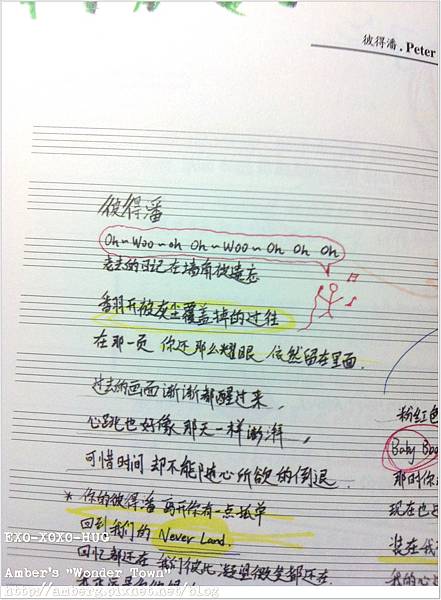 彼得潘 . Peter
彼得潘
Oh~Woo~oh Oh~Woo~Oh Oh Oh
老去的日记在墙角被遗忘
翻开被灰尘覆盖掉的过往
在那一页 你还那么耀眼 依然留在里面.
过去的画面渐渐都醒过来,
心跳也好像那天一样澎湃,
可惜时间却不能随心所欲的倒退.
* 你的彼得潘离开你有一点孤单
回到我们的 Never Land.
回忆都还在 我们彼此凝望微笑都还在
粉红色
Baby Boo
那时你
现在也
装在我
我的心
EXO-XOXO-HUG
Amber's "Wonder Town"
http://amberg.pixnet.net/blog